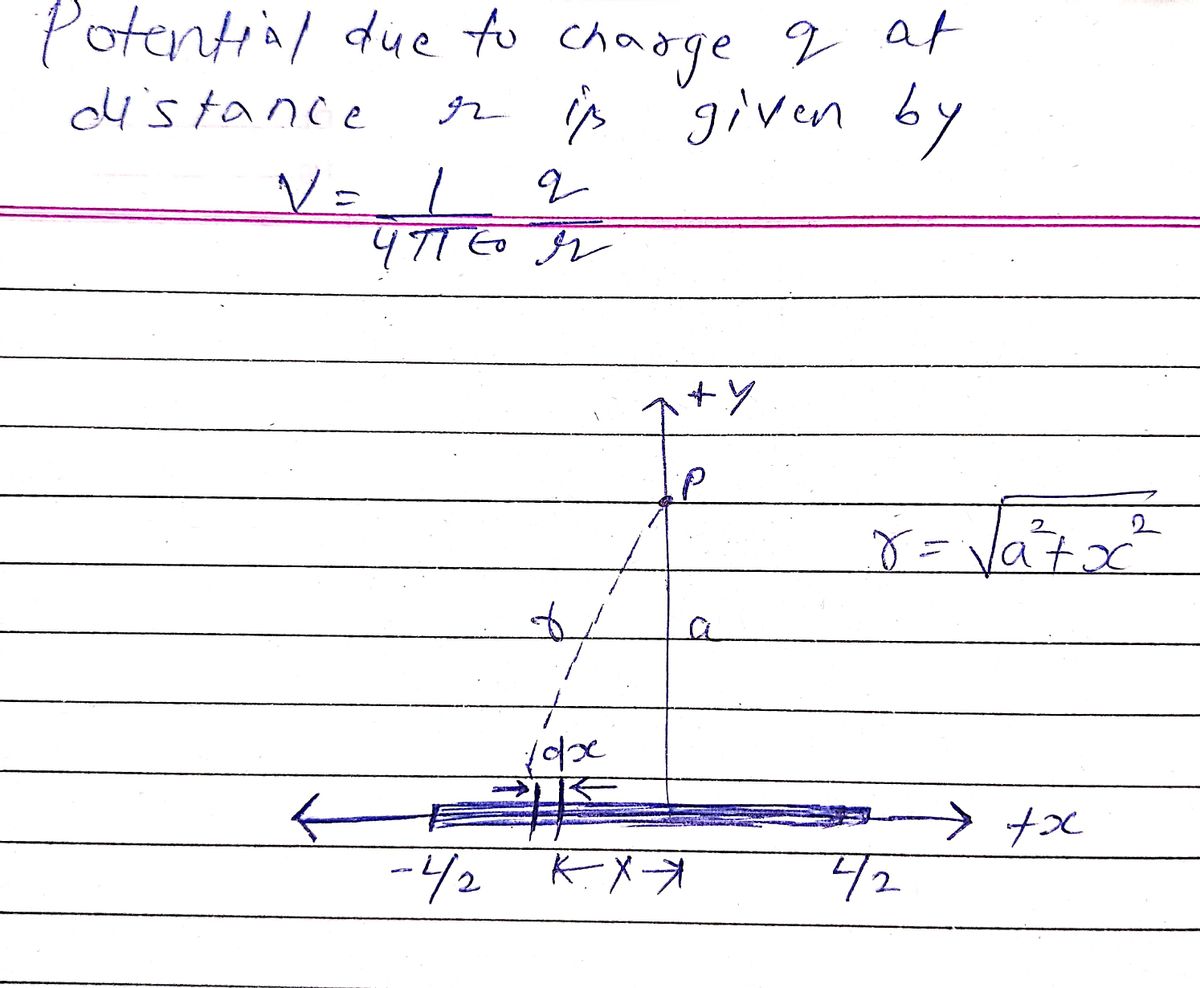 Potential due to charge q at
distance r is given by
V = 1/4πϵ0 q/r
+y
P
r = √a²+x²
r
a
dx
+x
-L/2
x
L/2